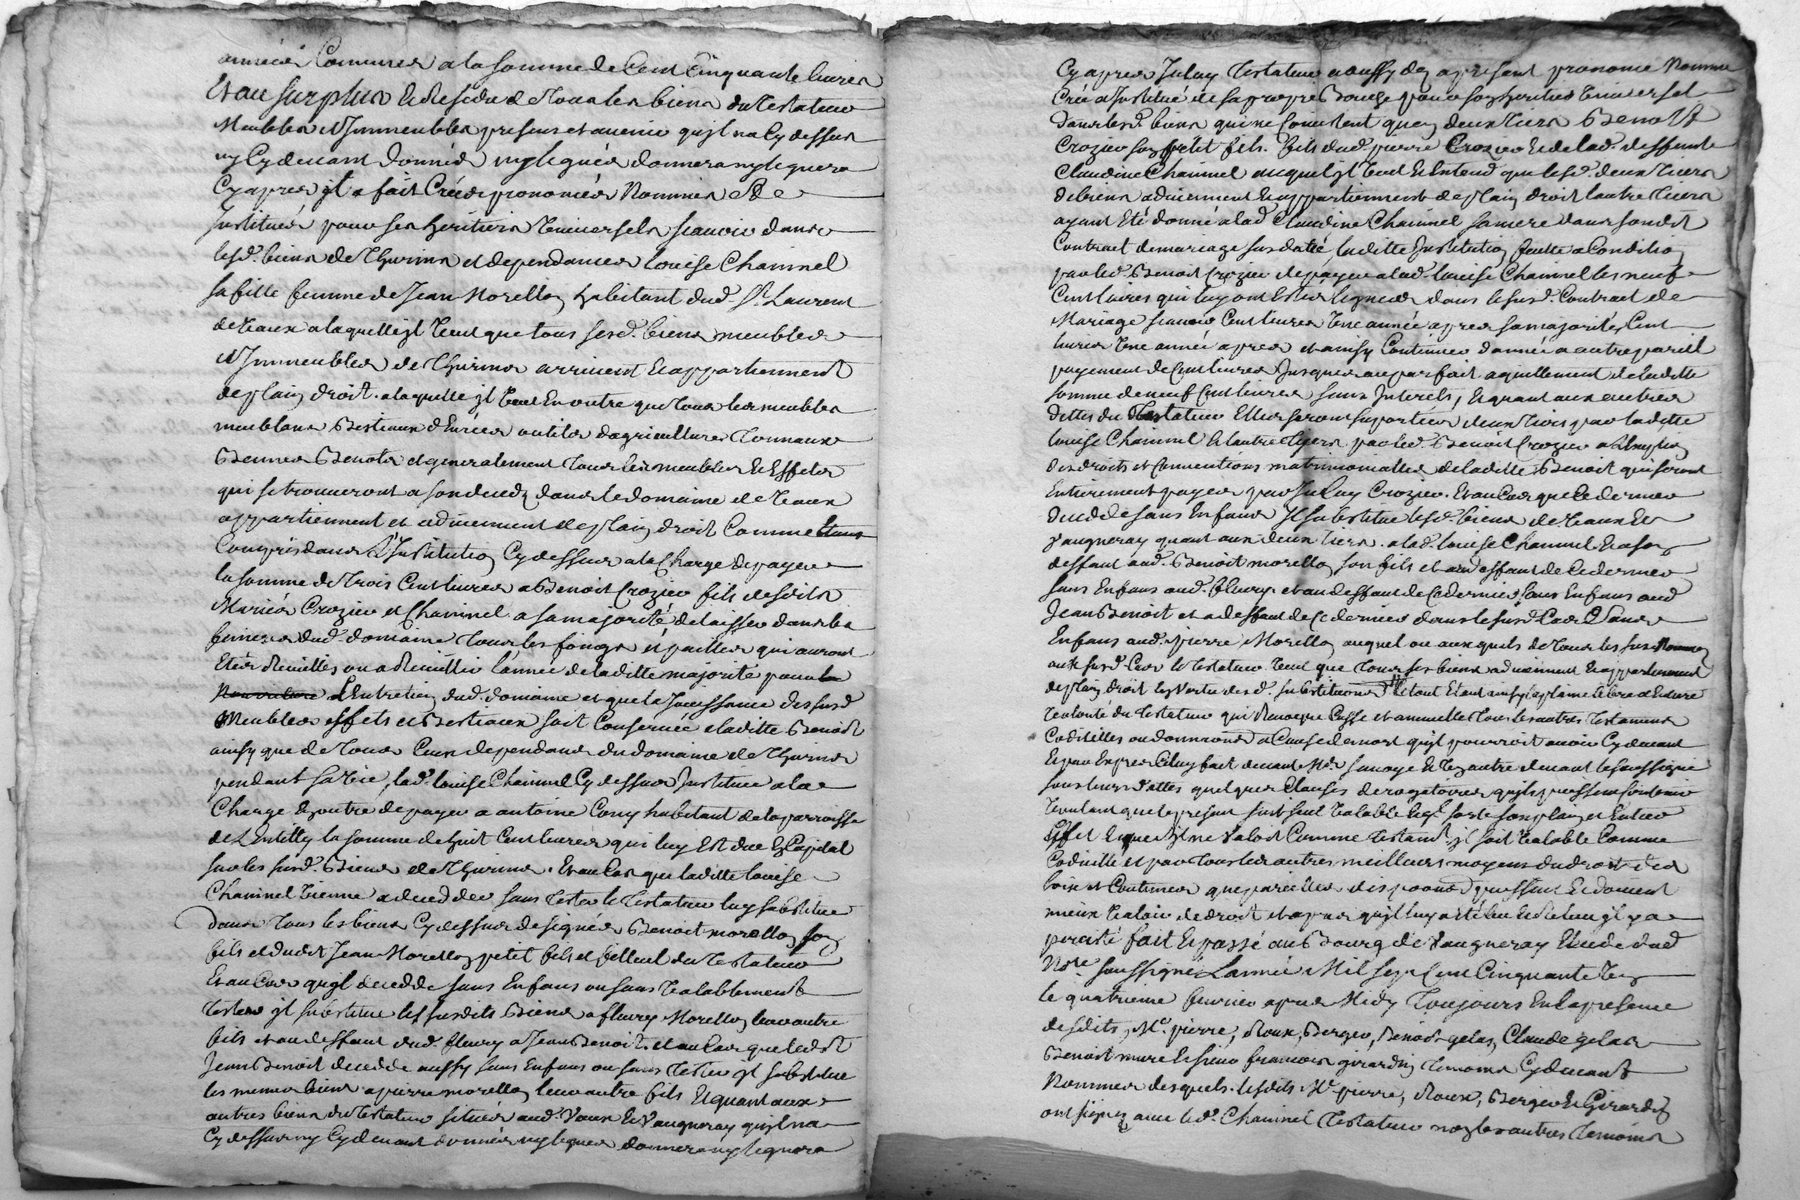 années Commune a la somme de Cent Cinquante livres
Et au surplus & Residu de tous les biens du testateur
Meubles & Immeubles presens et avenir quil na Cy dessus
ny Cy devant donnés ny legués donnera ny leguera
Cy apres il a fait Créé & prononcé Nommés & De
Institués pour ses heritiers Universels scavoir dans
lesd. biens de Thurins et dependances louise Chaninel
sa fille femme de Jean Morellon habitant dud. St. Laurent
de Vaux a laquelle il veut que tous sesd. biens meubles
& Immeubles de Thurins arrivent & appartiennent
de plain droit. a laquelle il veut En outre que tous les meubles
meublans Bestiaux denrées outils dagriculture Tonneaux
Bennes Benots et generalement tous les meubles & Effets
qui se trouveront a son deced dans le domaine de Vaux
appartiennent et adviennent de plain droit Comme Etans
Compris dans l'Institution Cy dessus a la Charge de payer
la somme de trois Cent livres a Benoit Crozier fils desdits
Mariés Crozier et Chaninel a sa majorité de laisser dans les
fenieres dud. domaine tous les foings & pailles qui auront
Etés Receuillis ou a Receuillir lannée de laditte majorité pour la
Nourriture & Entretien dud. domaine et que la Joüissance dessusd.
Meubles effets et Bestiaux soit Conservée a laditte Benoit
ainsy que de tous Ceux dependans du domaine de Thurins
pendant sa vie, lad. louise Chaninel Cy dessus Instituée a la
Charge En outre de payer a antoine Cony habitant de la parroisse
de Lentilly la somme de huit Cent livres qui luy Est due En Capital
sur les susd. Biens de Thurins. Et au Cas que laditte louise
Chaninel Vienne a deceder sans tester le testateur luy substitue
dans tous les biens Cy dessus designés Benoit morellon son
fils et dudit Jean Morellon petit fils et filleul du testateur
Et au Cas quil decedde sans Enfans ou sans Valablement
tester il substitue lesd susdits Biens a fleury Morellon leur autre
fils et au deffaut dud. fleury a Jean Benoit. et au Cas que ledit
Jean Benoit decedde aussy sans Enfans ou sans tester il substitue
les memes biens a pierre morellon leur autre fils Et quant aux
autres biens du testateur situés aud. Vaux & Vaugneray quil na
Cy dessus ny Cy devant donnés ny legués donnera ny leguera
Cy apres Iceluy testateur a aussy dez apresent prononcé Nommé
Créé & Institué de sa propre Bouche pour son heritier Universel
dans lesd. biens qui ne Consistent quen deux tiers Benoist
Crozier son petit fils. fils dud. pierre Crozier & de lad. deffunte
Claudine Chaninel auquel il veut & Entend que lesd. deux tiers
de biens adviennent & appartiennent de plain droit lautre tiers
ayant Eté donné a lad. Claudine Chaninel sa mere dans sondit
Contract de mariage sus datté laditte Institution faitte a Condition
par led. Benoit Crozier de payer a lad. louise Chaninel les neuf
Cent livres qui luy ont Etés leguées dans le susd. Contract de
Mariage scavoir Cent livres Une année apres sa majorité, Cent
livres Une année apres et ainsy Continuer dannée a autre pareil
payement de Cent livres Jusques au parfait aquittement de laditte
somme de neuf Cent livres sans Interets, Et quant aux autres
dettes du Testateur Elles seront suportées deux tiers par laditte
louise Chaninel & lautre tiers par led. Benoit Crozier a lexception
des droits et Conventions matrimonialles de laditte Benoit qui seront
Entierement payés par Iceluy Crozier. Et au Cas que Ce dernier
decedde sans Enfans Il substitue lesd. biens de Vaux &
Vaugneray quant aux deux tiers. a lad. louise Chaninel & a son
deffaut aud. Benoit morellon son fils et au deffaut de Ce dernier
sans Enfans aud. fleury. et au deffaut de Ce dernier sans Enfans aud.
Jean Benoit et a deffaut de Ce dernier dans le susd. Cas Dans
Enfans aud. pierre Morellon auquel ou auxquels de tous les sus Nommés
aux susd. Cas le testateur veut que tous ses biens adviennent & appartiennent
de plain droit En Vertu desd. substitutions le tout Etant ainsy la pleine libre & Entiere
Volonté du testateur qui Revoque Casse et annulle tous les autres testamens
Codicilles ou donnations a Cause de mort quil pourroit avoir Cy devant
Et par Exprés Celuy fait devant Me. sauvage & Un autre devant le soussigné
sous leurs dattes quelques Clauses derogatoires quils puissent Contenir
Voulant que le present soit seul Valable & quil sorte son plain et Entier
Effet Et que sil ne Valoit Comme testament il soit Valable Comme
Codicille et par tous les autres meilleurs moyens du droit des
loix et Coutumes que pareilles dispositions puissent & doivent
mieux Valoir de droit et apres quil luy a été leu & Releu il y a
persisté fait & passé au Bourg de Vaugneray Etude dud.
Nore. soussigné Lannée Mil sept Cent Cinquante Un
le quatrieme fevrier apres Midy Toujours En la presence
desdits, Me. pierre, Roux, Berger, Benoit gelas, Claude gelas
Benoit mure Et sieur francois girardin temoins Cy devant
Nommés desquels. lesdits. Me. pierre, Roux, Berger & Girardin
ont signez avec led. Chaninel testateur non les autres temoins